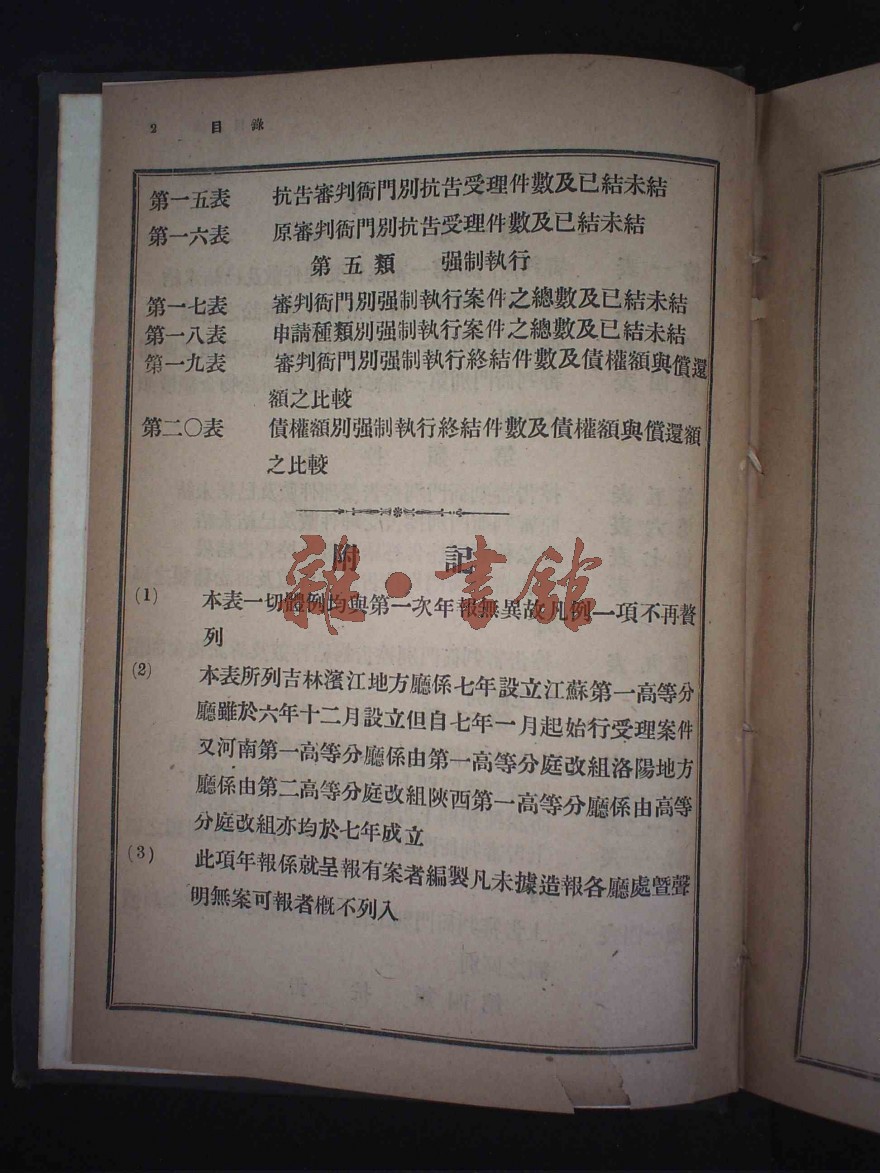 2 目錄
第一五表 抗告審判衙門別抗告受理件數及已結未結
第一六表 原審判衙門別抗告受理件數及已結未結
第五類 强制執行
第一七表 審判衙門別强制執行案件之總數及已結未結
第一八表 申請種類別强制執行案件之總數及已結未結
第一九表 審判衙門別强制執行終結件數及債權額與償還
額之比較
第二〇表 債權額別强制執行終結件數及債權額與償還額
之比較
附記
雜·書館
(1) 本表一切體例均與第一次年報無異故凡例一項不再贅
列
(2) 本表所列吉林濱江地方廳係七年設立江蘇第一高等分
廳雖於六年十二月設立但自七年一月起始行受理案件
又河南第一高等分廳係由第一高等分庭改組洛陽地方
廳係由第二高等分庭改組陝西第一高等分廳係由高等
分庭改組亦均於七年成立
(3) 此項年報係就呈報有案者編製凡未據造報各廳處暨聲
明無案可報者概不列入